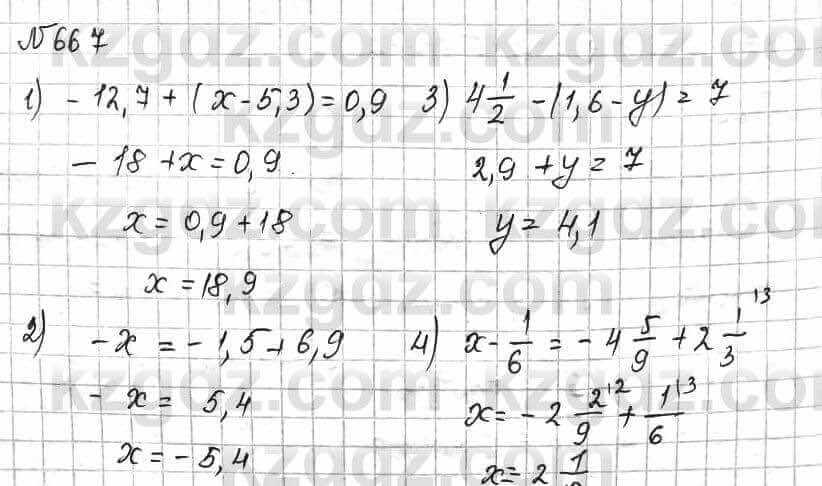 № 667
1) - 12,7 + (x - 5,3) = 0,9
- 18 + x = 0,9
x = 0,9 + 18
x = 18,9
2) - x = - 1,5 + 6,9
- x = 5,4
x = - 5,4
3) 4 1/2 - (1,6 - y) = 7
2,9 + y = 7
y = 4,1
4) x - 1/6 = - 4 5/9 + 2 1/3 \3
x = - 2 2/9 \2 + 1/6 \3
x = 2 1
kzgdz.com